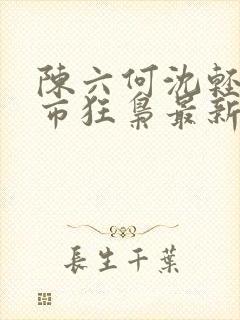 陳六何沈輕
市狂梟最新
長生千葉